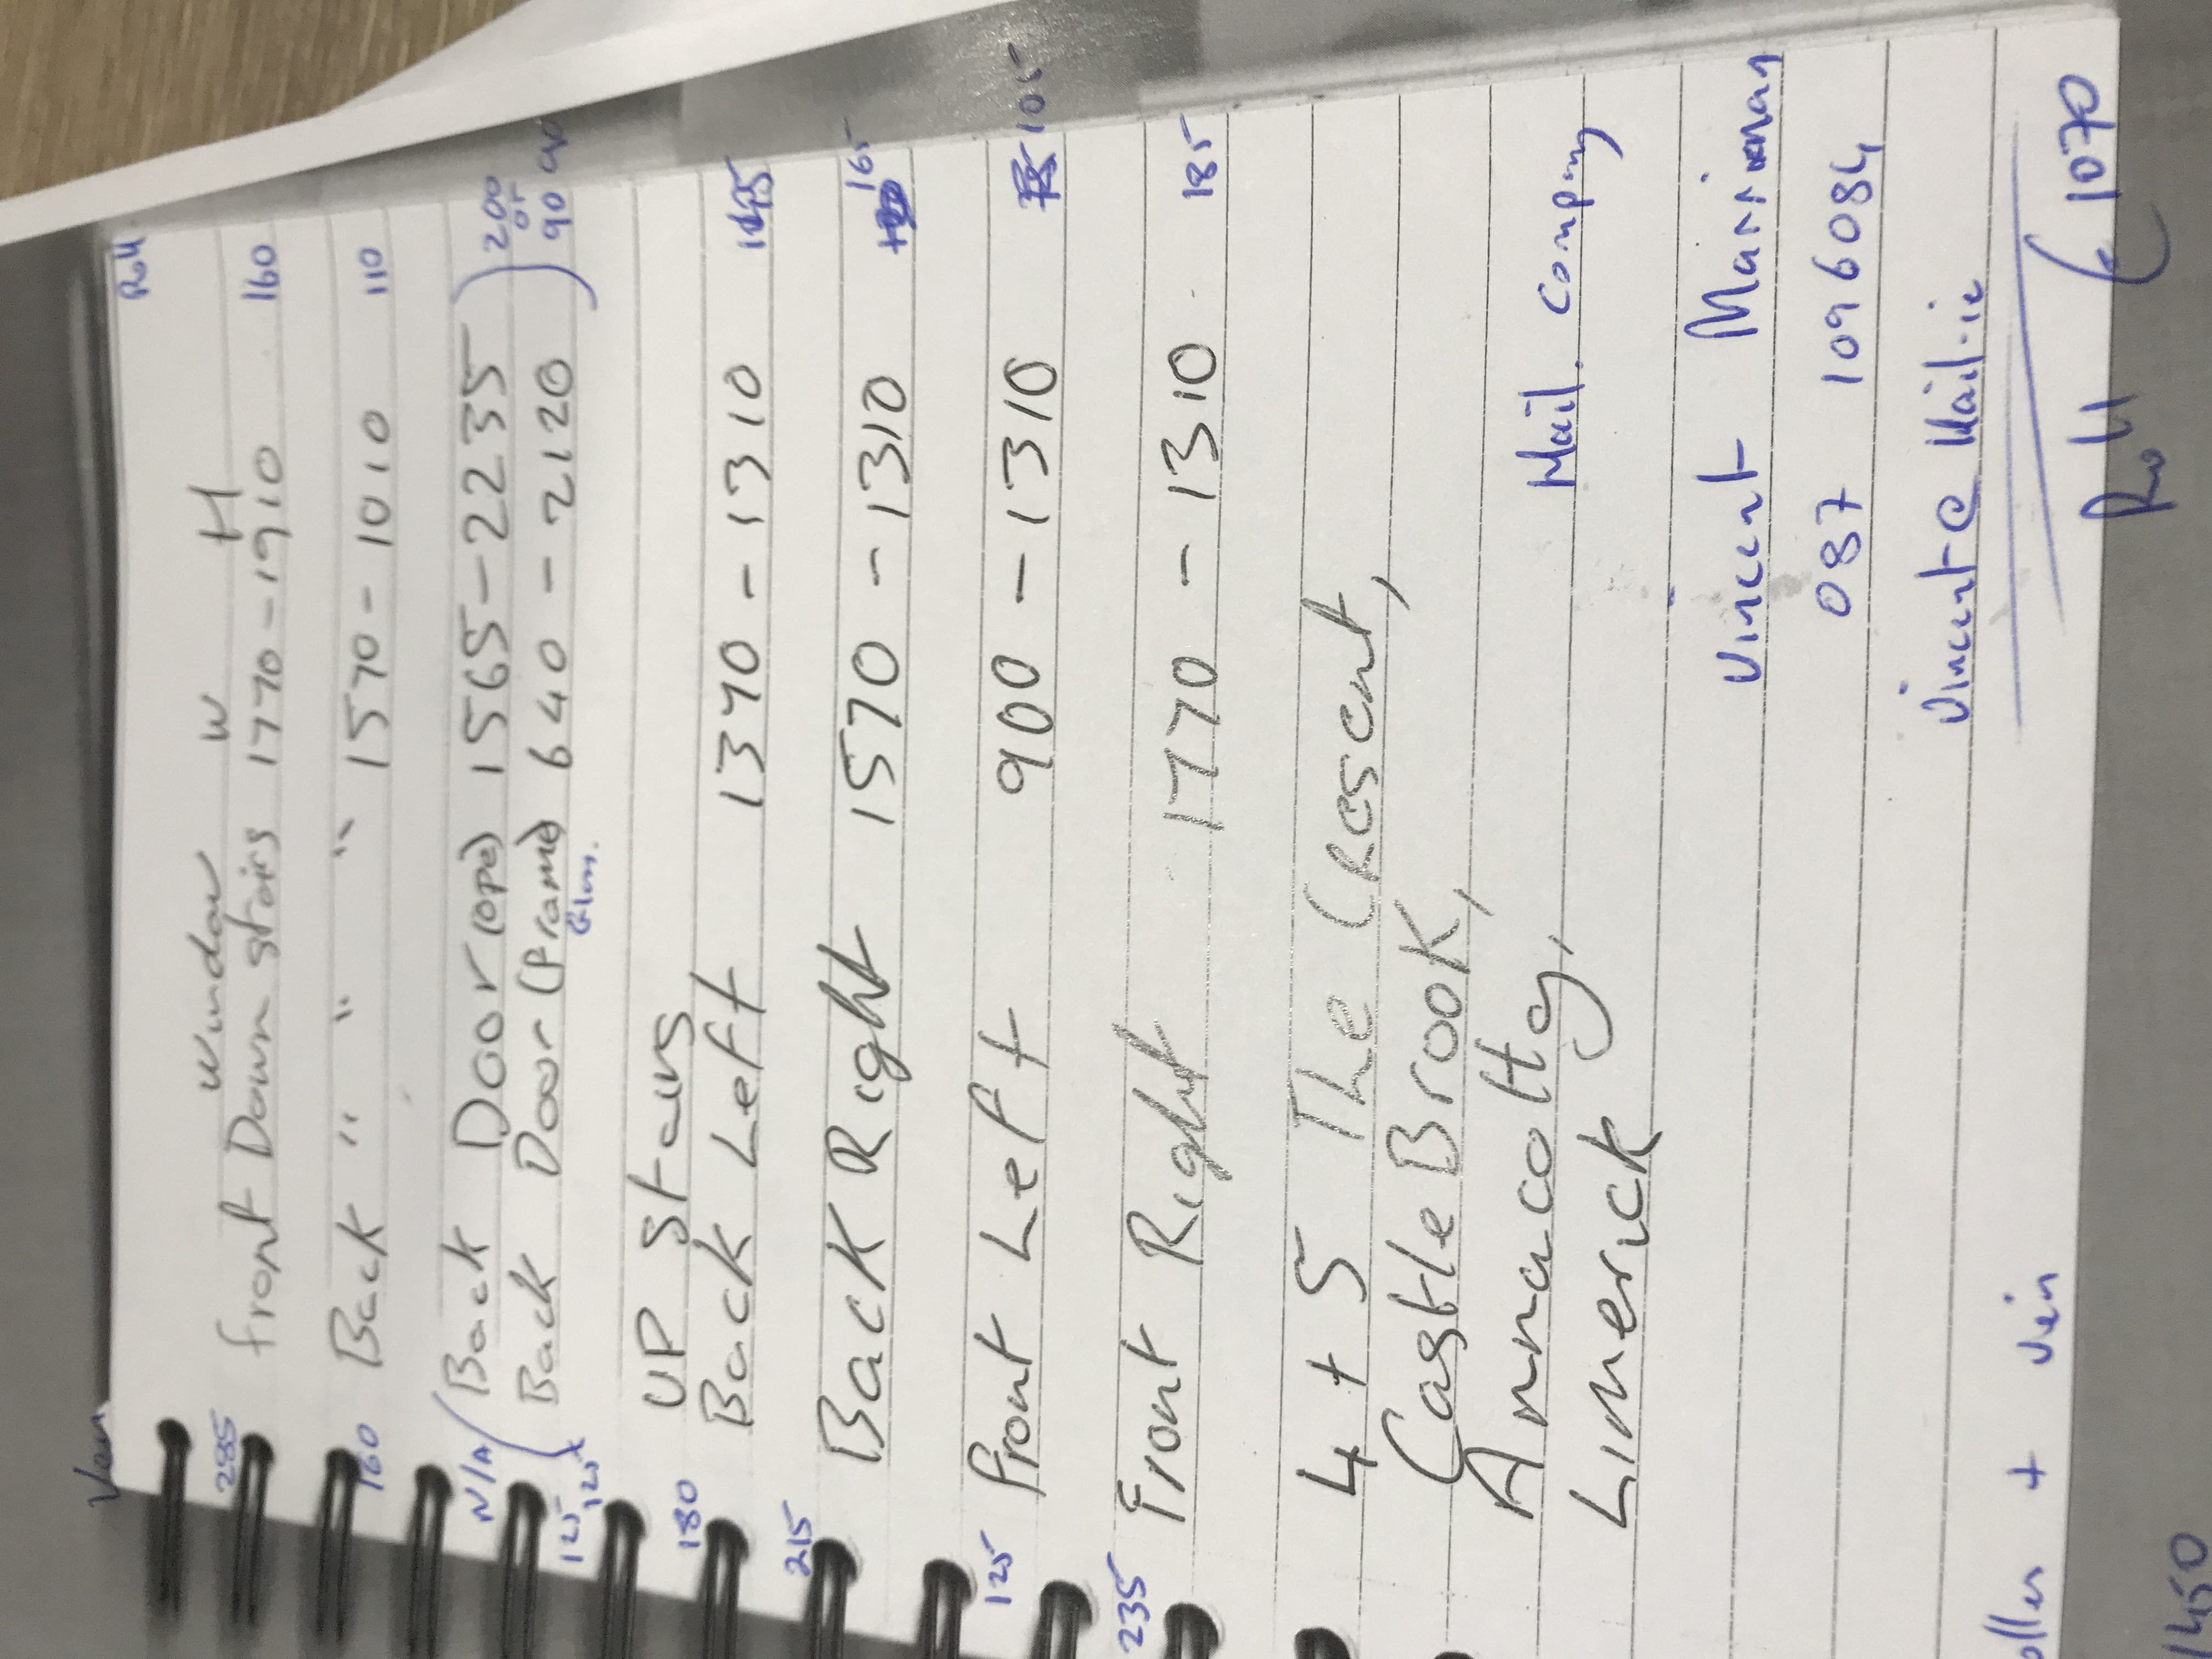 Ven Roll
Window W H
285 Front Down stairs 1770-1910 160
160 Back " " " 1570-1010 110
N/A (Back Door (ope) 1565-2235) 200 or
125 Back Door (Frame) 640-2120) 90
125
UP stairs
180 Back Left 1370-1310
215 Back Right 1570-1310 165
125 Front Left 900-1310 105
235 Front Right 1770-1310 185
4 + 5 The Cresent,
Castle Brook,
Annacotty,
Limerick
Mail. Company
Vincent
087 1096084
Vincent@Mail.ie
oller + Ven Roll € 1070
1450